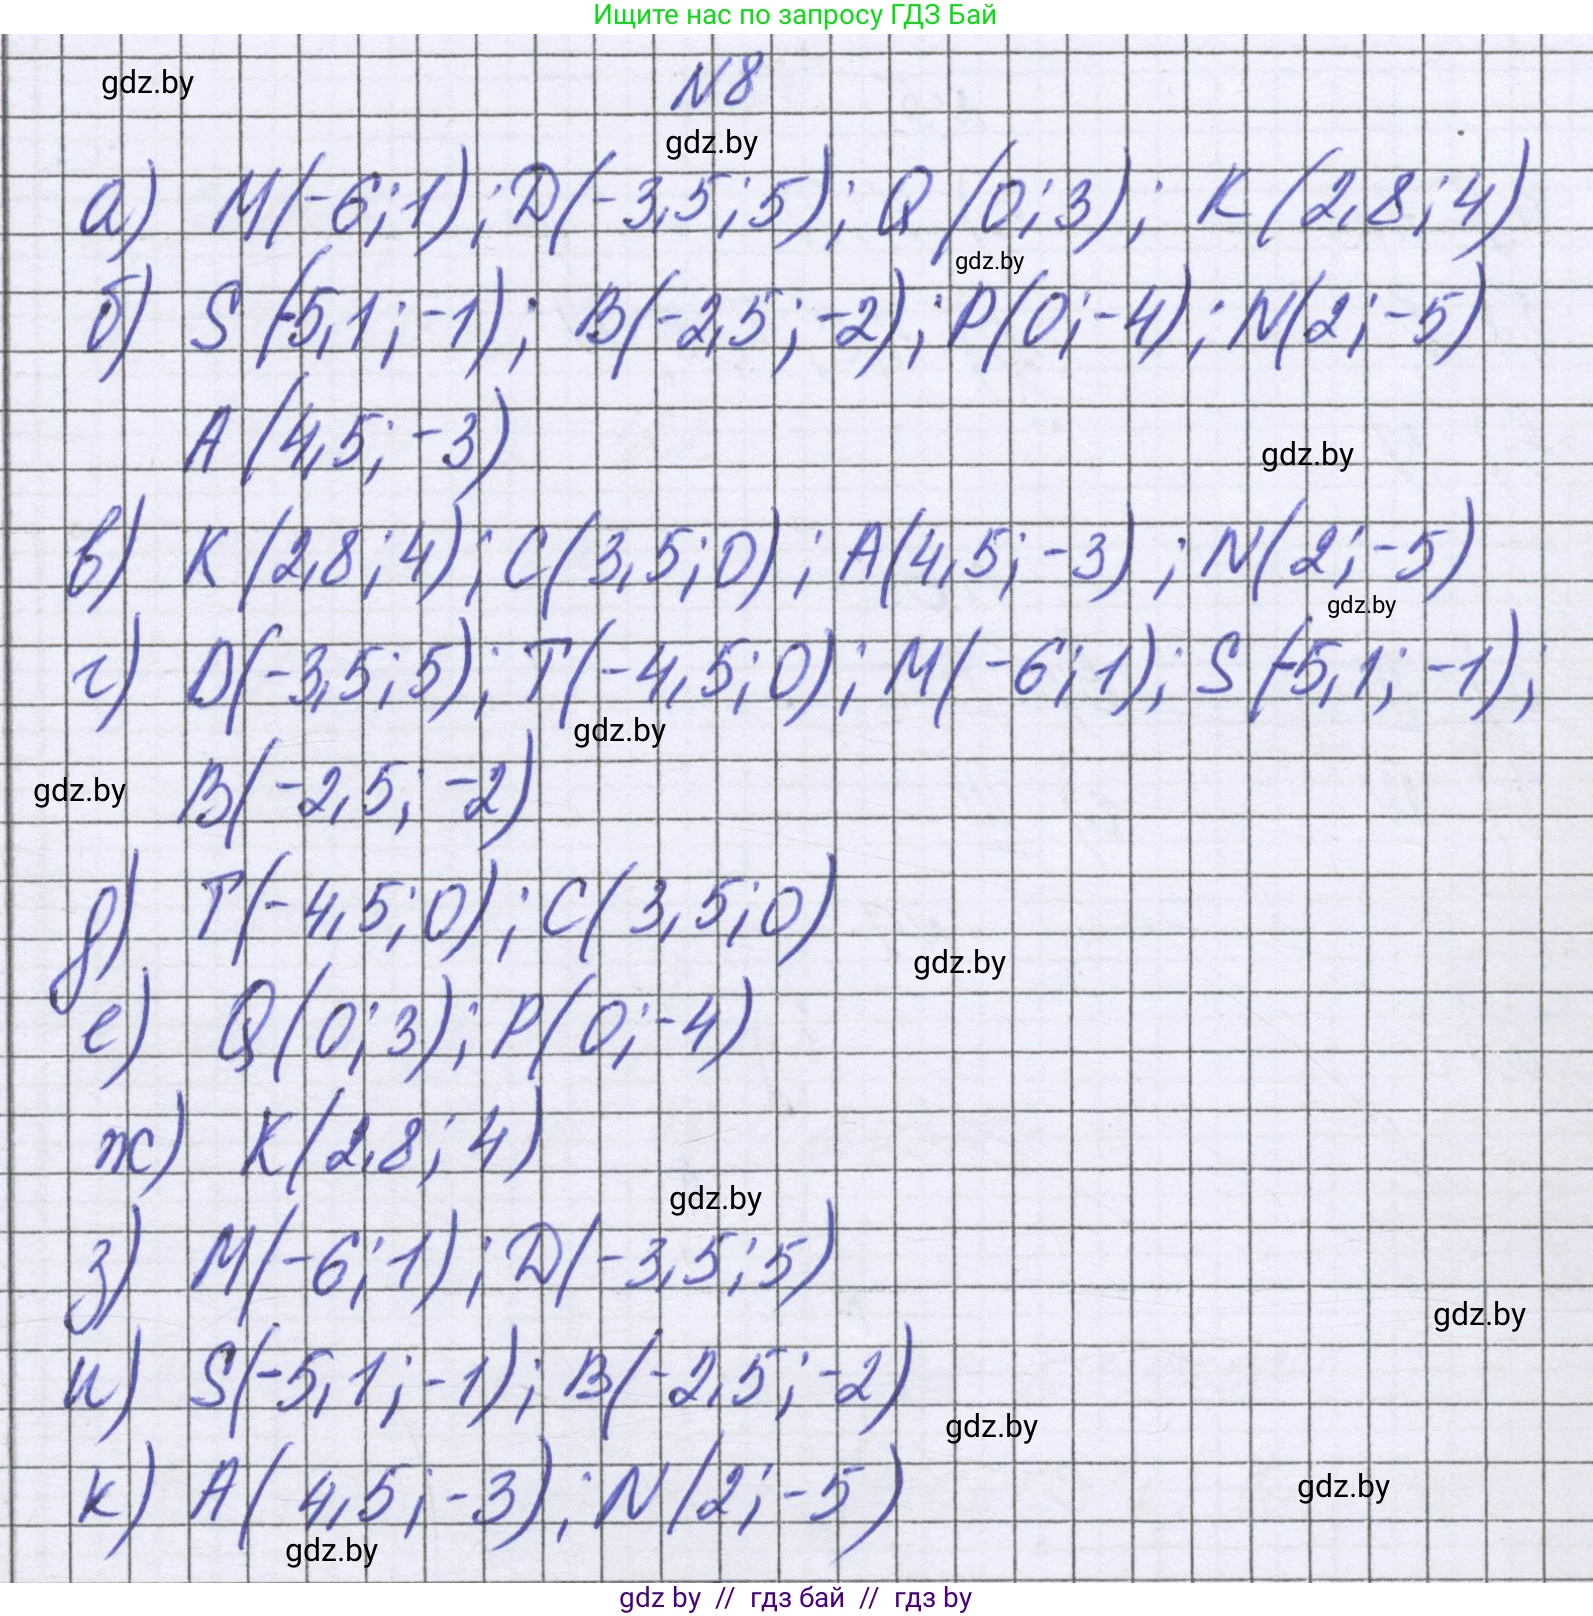 Ищите нас по запросу ГДЗ Бай
gdz.by
N8
gdz.by
а) M(-6;1); D(-3,5;5); Q(0;3); K(2,8;4)
gdz.by
б) S(-5,1;-1); B(-2,5;-2); P(0;-4); N(2;-5)
A(4,5;-3)
gdz.by
в) K(2,8;4); C(3,5;0); A(4,5;-3); N(2;-5)
gdz.by
г) D(-3,5;5); T(-4,5;0); M(-6;1); S(-5,1;-1);
gdz.by
B(-2,5;-2)
gdz.by
д) T(-4,5;0); C(3,5;0)
gdz.by
е) Q(0;3); P(0;-4)
ж) K(2,8;4)
gdz.by
з) M(-6;1); D(-3,5;5)
gdz.by
и) S(-5,1;-1); B(-2,5;-2)
gdz.by
к) A(4,5;-3); N(2;-5)
gdz.by
gdz.by
gdz by // гдз бай // гдз by